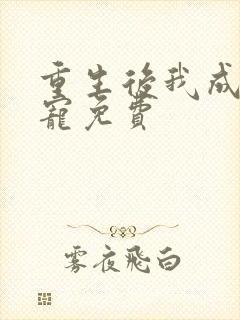 重生後我成
寵免費
霧夜飛白